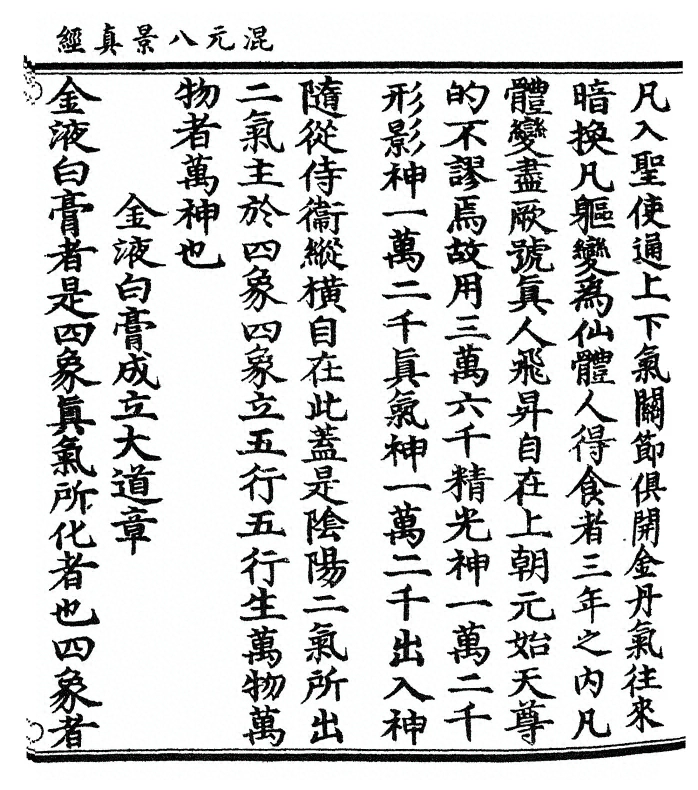 混元八景真經
凡入聖使通上下氣關節俱開金丹氣往來
暗換凡軀變為仙體人得食者三年之內凡
體變盡厥號眞人飛昇自在上朝元始天尊
的不謬焉故用三萬六千精光神一萬二千
形影神一萬二千眞氣神一萬二千出入神
隨從侍衞縱橫自在此蓋是陰陽二氣所出
二氣主於四象四象立五行五行生萬物萬
物者萬神也
金液白膏成立大道章
金液白膏者是四象眞氣所化者也四象者